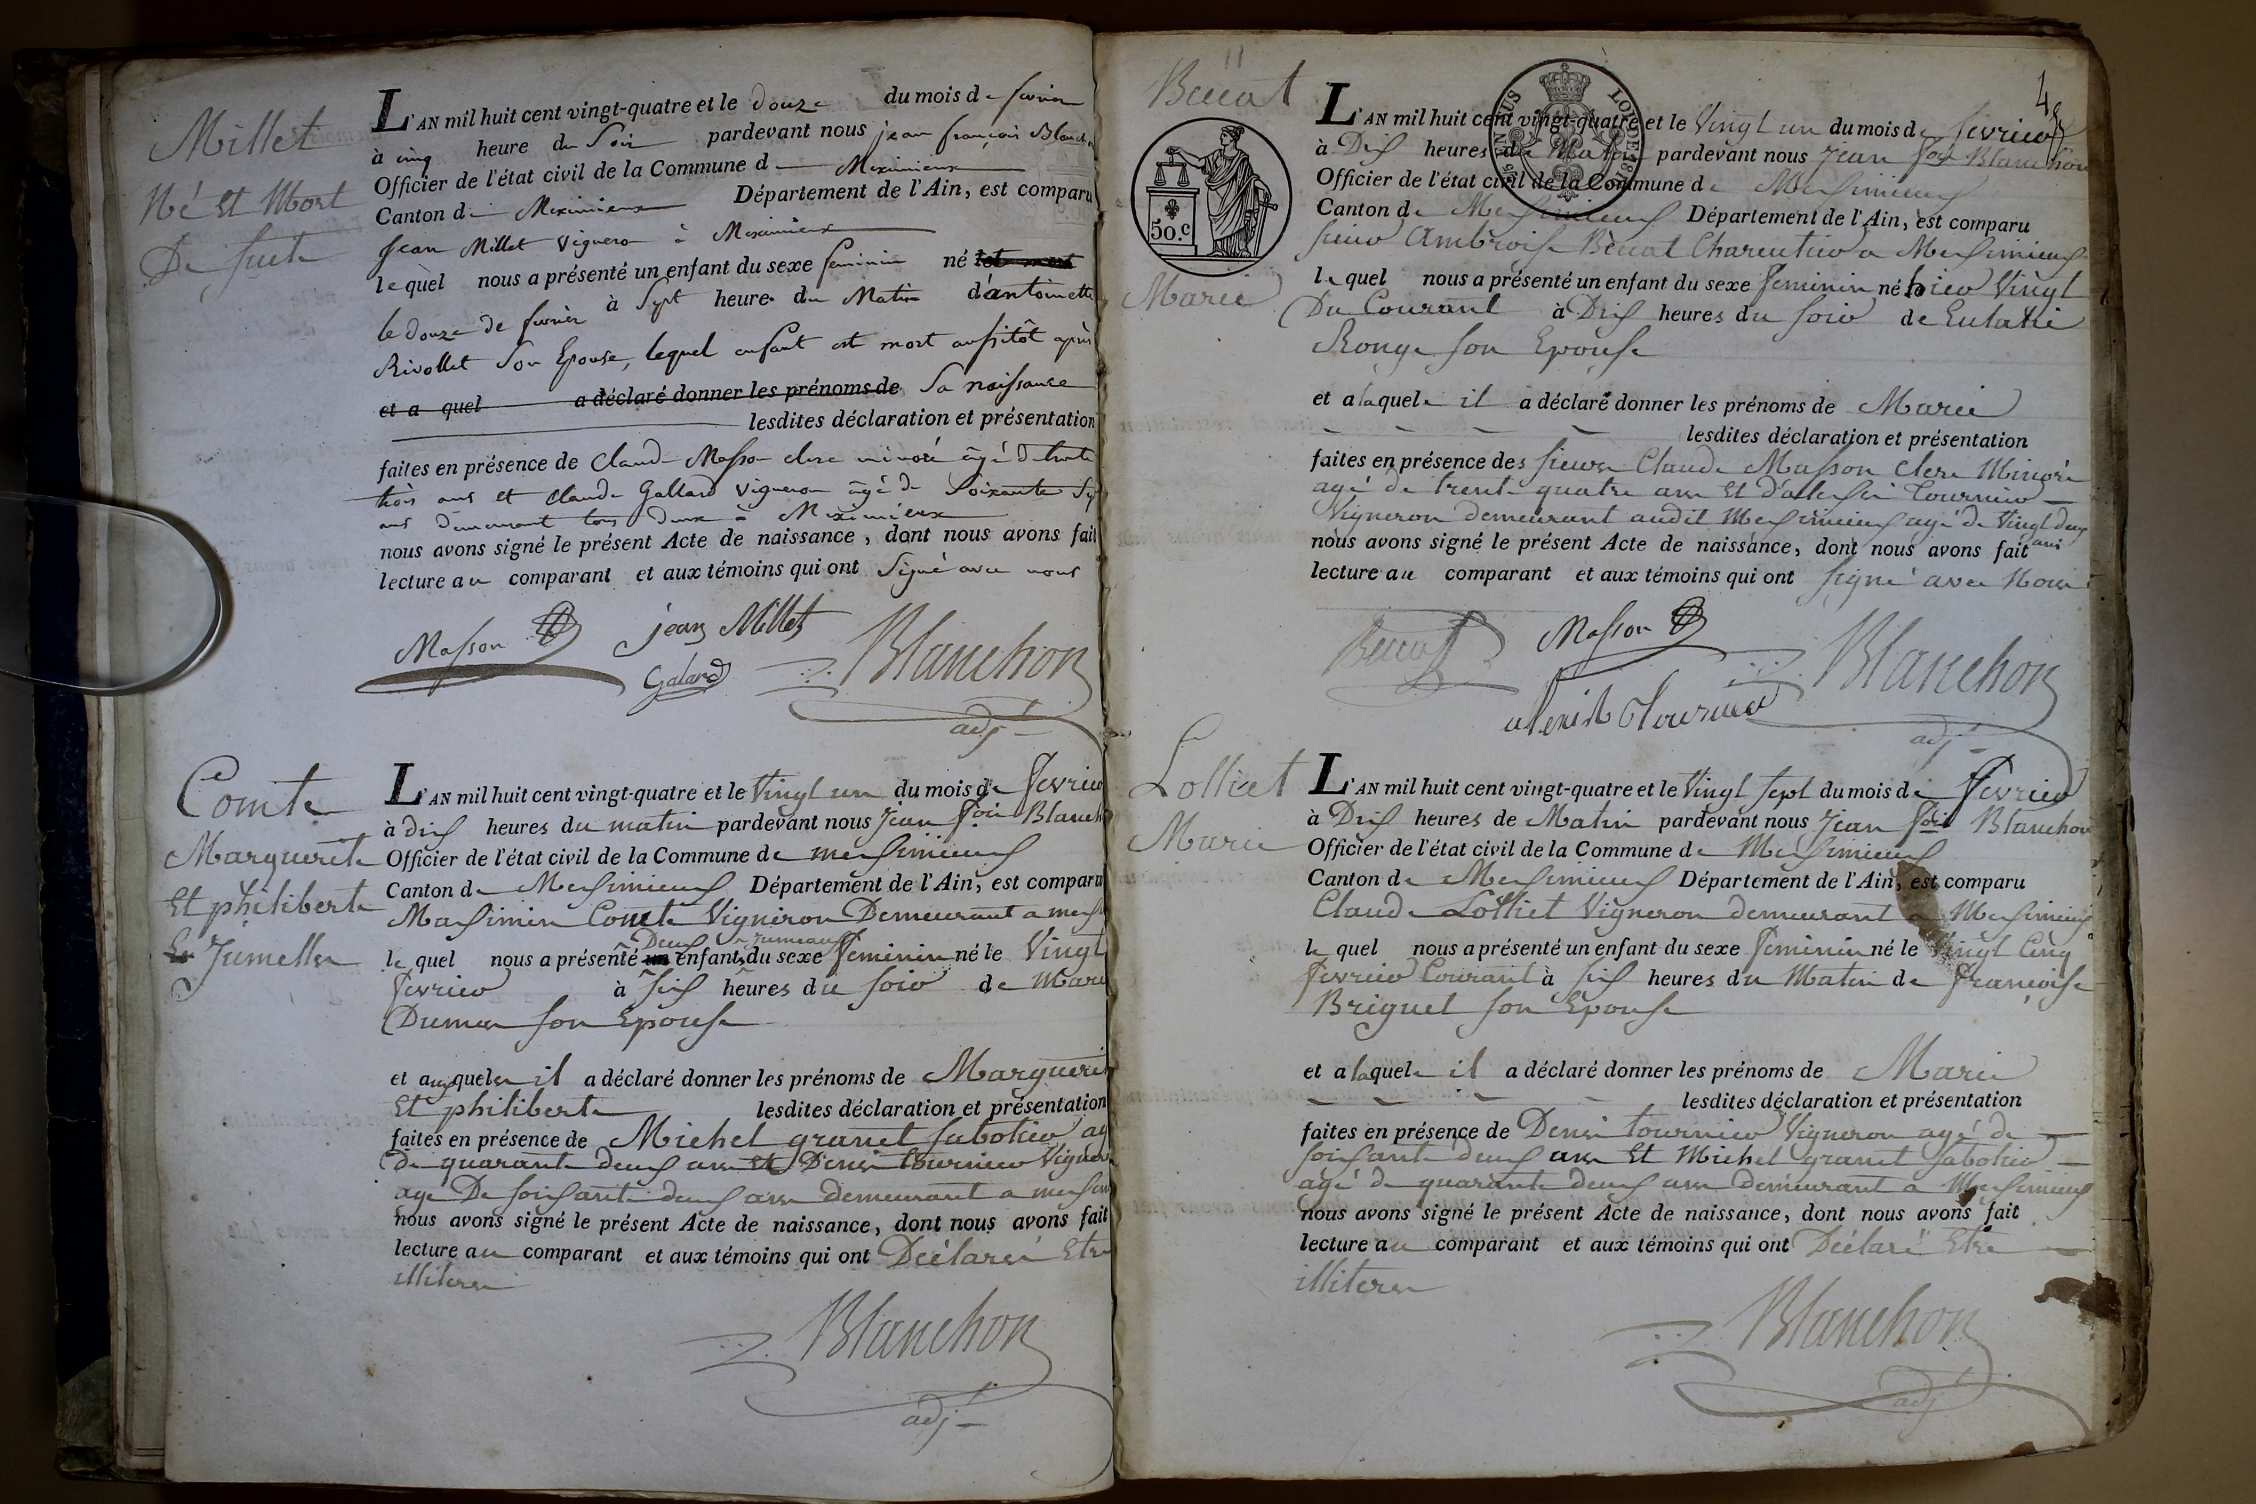 Millet
Né et Mort
De suite
L'AN mil huit cent vingt-quatre et le douze du mois de fevrier
à cinq heure du Soir pardevant nous jean françois Blanchon
Officier de l'état civil de la Commune de Meximieux
Canton de Meximieux Département de l'Ain, est comparu
Jean Millet Vigneron à Meximieux
lequel nous a présenté un enfant du sexe feminin né tot mort
le douze de fevrier à Sept heure du Matin d'antoinette
Rivollet Son Epouse, lequel enfant est mort aussitôt après
et a quel a déclaré donner les prénoms de Sa naissance
lesdites déclaration et présentation
faites en présence de Claude Masson clerc minoré âgé de trente
trois ans et Claude Galland Vigneron âgé de Soixante
ans demeurant tous deux à Meximieux
nous avons signé le présent Acte de naissance, dont nous avons fait
lecture au comparant et aux témoins qui ont Signé avec nous
Masson jean Millet
Galard Blanchon
adj
Comte
Marguerite
Et philiberte
Jumelles
L'AN mil huit cent vingt-quatre et le Vingt un du mois de Fevrier
à dix heures du matin pardevant nous Jean fois Blanch
Officier de l'état civil de la Commune de mexsimieux
Canton de Mexsimieux Département de l'Ain, est comparu
Maximin Comte Vigneron Demeurant a mex
Deux Jumeaux
le quel nous a présenté un enfants du sexe Feminin né le Vingt
fevrier à six heures du soir de Marie
Dumas son Epouse
et auxqueles il a déclaré donner les prénoms de Marguerit
Et philiberte lesdites déclaration et présentation
faites en présence de Michel granet sabotier ag
de quarante deux ans Et Denis tournier Vigneron
age De soixante deux ans demeurant a mexsim
nous avons signé le présent Acte de naissance, dont nous avons fait
lecture au comparant et aux témoins qui ont Déclarés Etre
illiteres
Blanchon
adj
48
Béccat
50.c
Marie
L'AN mil huit cent vingt-quatre et le Vingt un du mois de fevrier
à Dix heures du Matin pardevant nous Jean fois Blanchon
Officier de l'état civil de la Commune de Mexsimieux
Canton de Mexsimieux Département de l'Ain, est comparu
sieur Ambroise Béccat Charcutier a Mexsimieux
le quel nous a présenté un enfant du sexe Feminin né hier Vingt
Du Courant à Dix heures du soir de Eulalie
Ronge son Epouse
et a laquele il a déclaré donner les prénoms de Marie
lesdites déclaration et présentation
faites en présence des sieurs Claude Masson Clerc Minoré
agé de trente quatre ans Et d'alexis tournier
Vigneron demeurant audit Mexsimieux agé de Vingt deux
ans
nous avons signé le présent Acte de naissance, dont nous avons fait
lecture au comparant et aux témoins qui ont signé avec Nous
Beccat Masson Blanchon
alexis tournier
adj
Lolliet
Marie
L'AN mil huit cent vingt-quatre et le Vingt sept du mois de Fevrier
à Dix heures de Matin pardevant nous Jean fois Blanchon
Officier de l'état civil de la Commune de Mexsimieux
Canton de Mexsimieux Département de l'Ain, est comparu
Claude Lolliet Vigneron demeurant a Mexsimieux
le quel nous a présenté un enfant du sexe Feminin né le Vingt Cinq
Fevrier Courant à six heures du Matin de françoise
Briguet son Epouse
et a laquele il a déclaré donner les prénoms de Marie
lesdites déclaration et présentation
faites en présence de Denis tournier Vigneron agé de
soixante deux ans Et Michel granet sabotier
agé de quarante deux ans demeurant a Mexsimieux
nous avons signé le présent Acte de naissance, dont nous avons fait
lecture au comparant et aux témoins qui ont Déclaré Etre
illiteres
Blanchon
adj